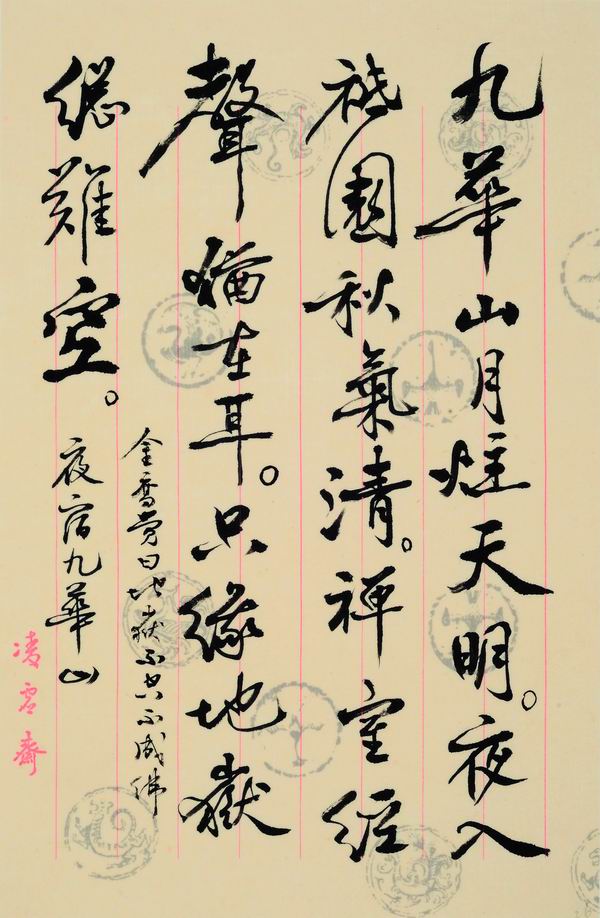 九華山月炷天明。夜入
祇園秋氣清。禪室經
聲猶在耳。只緣地獄
總難空。
金喬覺曰地獄不空不成佛
夜宿九華山
凌 齋